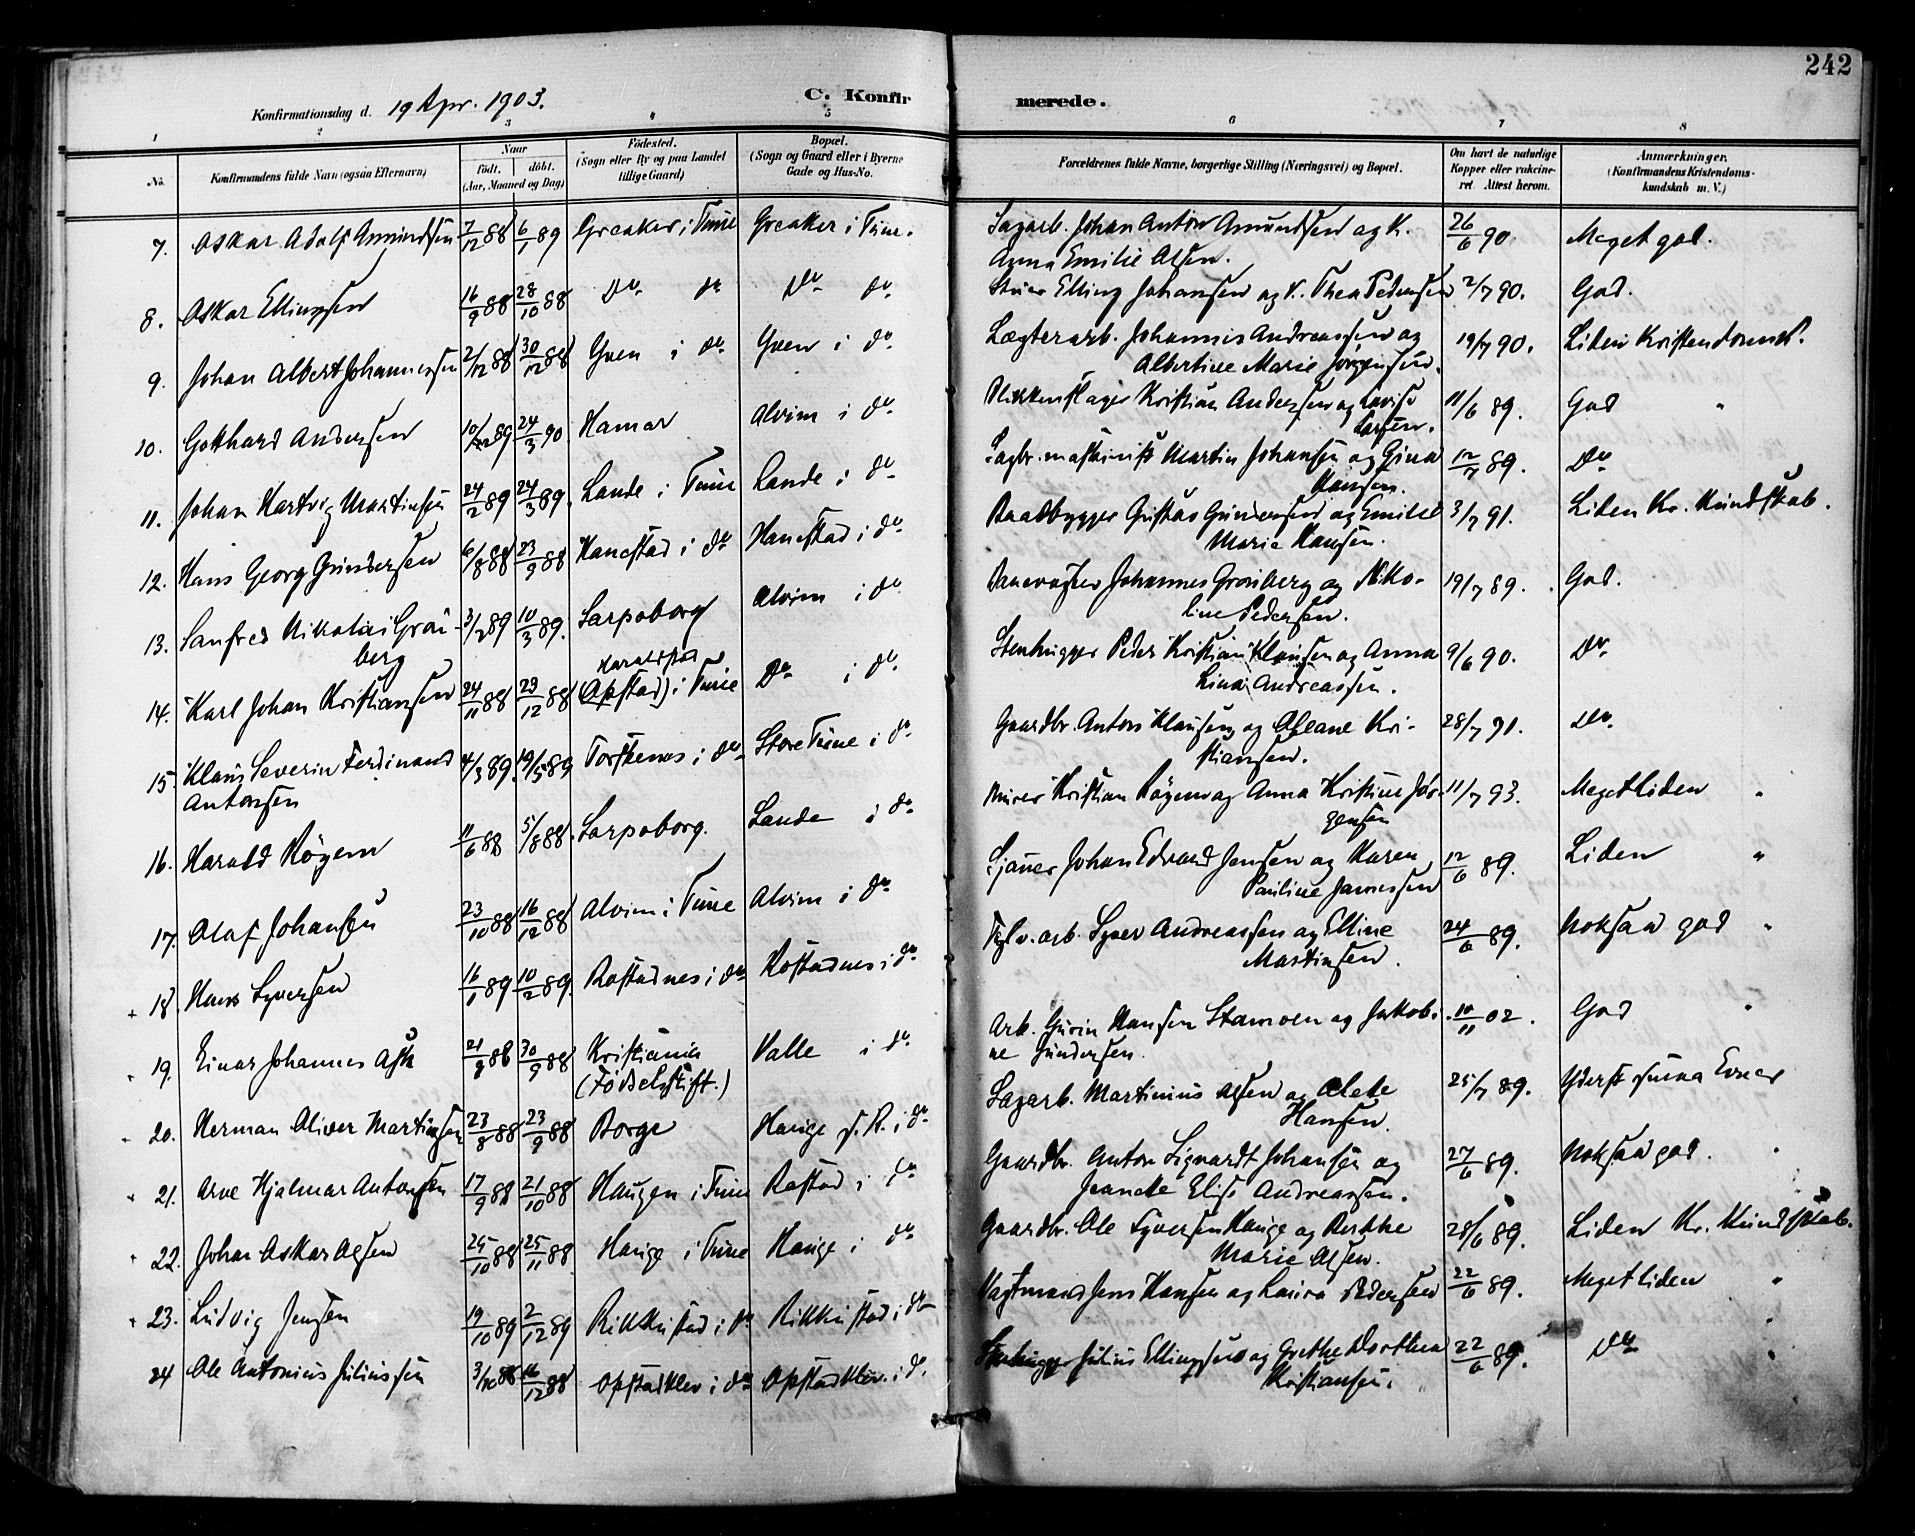 242
Konfirmationsdag d. 19 Apr. 1903.
C. Konfirmerede.
1 2 3 4 5 6 7 8
No.
Konfirmandens fulde Navn (ogsaa Efternavn)
Naar
født. døbt.
(Aar, Maaned og Dag)
Fødested.
(Sogn eller By og paa Landet
tillige Gaard)
Bopæl.
(Sogn og Gaard eller i Byerne
Gade og Hus-No.
Forældrenes fulde Navne, borgerlige Stilling (Næringsvei) og Bopæl.
Om havt de naturlige
Kopper eller vakcine-
ret Attest herom.
Anmærkninger.
(Konfirmandens Kristendoms-
kundskab m. V.)
7. Oskar Adolf Amundsen 7/12 88 6/1 89 Greaker i Tune Greaker i Tune. Sagarb. Johan Anton Amundsen og K. 26/6 90. Meget god.
Anna Emilie Olsen.
8. Oskar Ellingsen 16/9 88 28/10 88 Do do Do do Stuer Elling Johansen og K. Thea Pedersen 2/7 90. God.
9. Johan Albert Johannessen 2/12 88 30/12 88 Yven i do Yven i do Lægterarb. Johannis Andreassen og 19/7 90. Liden Kristendomsk.
Albertine Marie Jørgensen.
10. Gotthard Andersen 10/12 89 24/3 90 Hamar Alvim i do Blikkenslager Kristian Andersen og Lovise 11/6 89. God "
Larsen.
11. Johan Hartvig Martinsen 24/2 89 24/3 89. Lande i Tune Lande i do Sagbr. maskinist Martin Johansen og Gina 12/7 89. Do
Hansen.
12. Hans Georg Gundersen 6/8 88 23/9 88 Hanestad i do Hanestad i do Baadbygger Gustav Gundersen og Emilie 3/7 91. Liden Kr. Kundskab.
Marie Hansen.
13. Sanfred Nikolai Grøn- 3/2 89 10/3 89. Sarpsborg Alvim i do Banevogter Johannes Grønberg og Niko- 19/7 89. God.
berg
line Pedersen.
14. Karl Johan Kristiansen 24/11 88 23/12 88 (Opstad) i Tune Do i do Stenhugger Peder Kristian Klausen og Anna 9/6 90. Do
Lina Andreassen.
15. Klaus Severin Ferdinand 4/3 89. 19/5 89 Torskenes i do Store Tune i do Gaardbr. Anton Klausen og Oleane Kri- 28/7 91. Do
Antonsen
stiansen.
16. Harald Røgen 11/6 88 5/8 88. Sarpsborg. Lande i do Murer Kristian Røgen og Anna Kristine Jør- 11/7 93. Meget liden "
gensen
17. Olaf Johansen 23/10 88 16/12 88 Alvim i Tune Alvim i do Sjauer Johan Edvard Jensen og Karen 12/6 89. Liden "
Pauline Jamessen
18. Hans Syversen 16/1 89 10/2 89. Rostadnes i do Rostadnes i do Teglv. arb. Syver Andreassen og Elline 24/6 89. Noksaa god "
Martinsen.
19. Einar Johannes Ask 21/8 88 30/9 88 Kristiania Valle i do Arb. Gurin Hansen Stamoen og Jakobi- 10/11 02. God "
(Fødselsstift.)
ne Gundersen.
20. Herman Oliver Martinsen 23/8 88 23/9 88 Borge Hauge s. R. i do Sagarb. Martinius Olsen og Olete 25/7 89. Yderst smaa Evner
Hansen.
21. Arve Hjalmar Antonsen 17/9 88 21/10 88 Haugen i Tune Rostad i do Gaardbr. Anton Sigvardt Johansen og 27/6 89. Noksaa god. "
Jeanette Elise Andreassen.
22. Johan Oskar Olsen 25/10 88 25/11 88 Hauge i Tune Hauge i do Gaardbr. Ole Syversen Hauge og Berthe 28/6 89. Liden Kr. Kundskab.
Marie Olsen.
23. Ludvig Jensen 19/10 89 2/12 89 Rikkustad i do Rikkustad i do Vagtmand Jens Hansen og Laura Pedersen 22/6 89. Meget liden "
24 Ole Antonius Juliussen 3/10 88 16/12 88 Opstadklev i do Opstadklev. i do Stenhugger Julius Ellingsen og Grethe Dorthea 22/6 89. Do
Kristiansen.